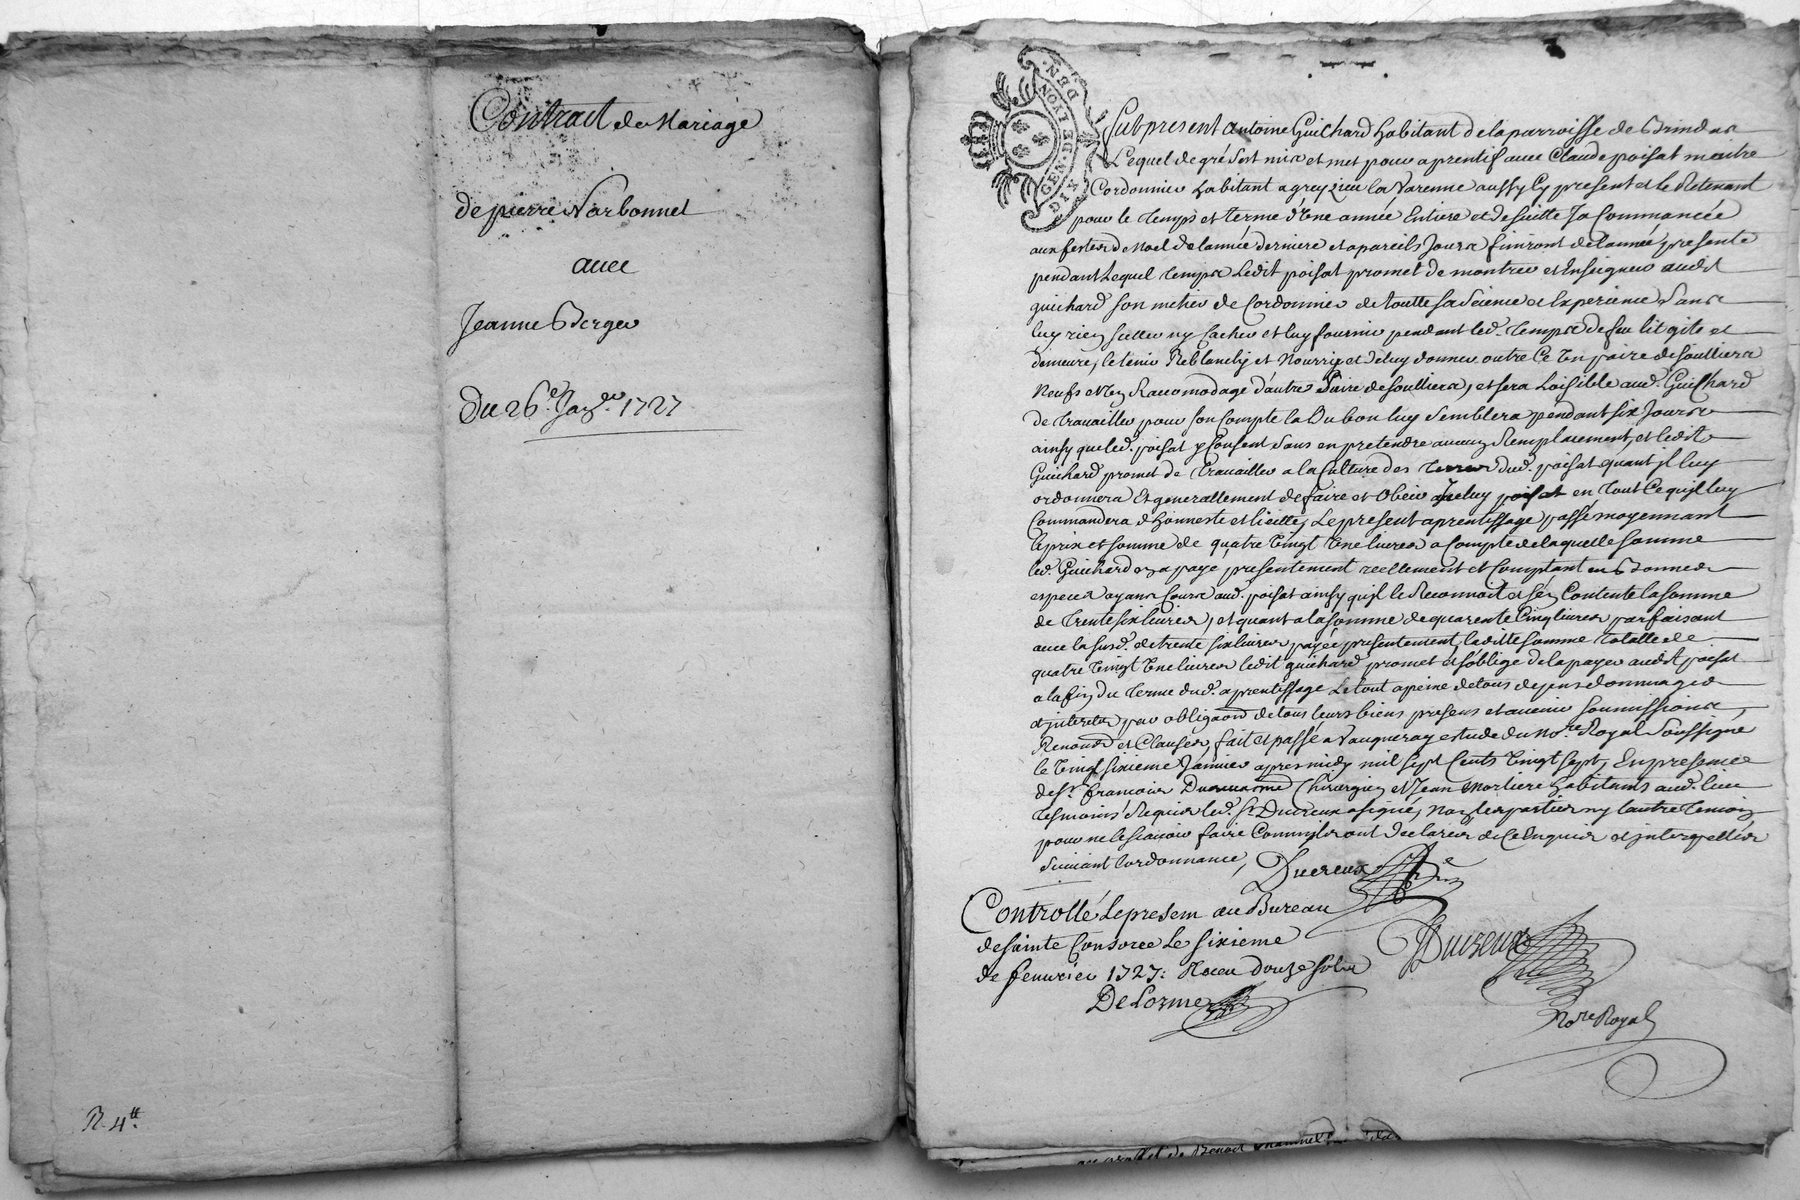 Contract de Mariage
de pierre Narbonnet
avec
Jeanne Berger
Du 26e Janer 1727
R. 4tt
GEN. DE LYON
DEN.
Fut present antoine Guichard habitant de la parroisse de Brindas
Lequel de gré s'est mis et met pour aprentif avec Claude poisat maitre
Cordonnier habitant a greyzieu la Varenne aussy cy present et le Retenant
pour le temps et terme d'Une année Entiere et de suitte Ja Commancée
aux festes de Noel de l'année derniere et a pareils Jours finiront de l'année presente
pendant Lequel temps Ledit poisat promet de montrer et Enseigner audit
guichard son metier de Cordonnier de toutte sa Science et Experience Sans
luy rien celler ny Cacher et luy fournir pendant led. temps de feu lit gite et
demeure, le tenir Reblanchy et Nourry et de luy donner outre Ce Un paire de soulliers
Neufs et Un Racomodage d'autre Paire de soulliers, et sera Loisible aud. Guichard
de travailler pour son Compte la Ou bon luy Semblera pendant six Jours
ainsy que led. poisat y Consent Sans en pretendre aucun Remplacement, et ledit
Guichard promet de travailler a la Culture des terres dud. poisat quant jl luy
ordonnera Et generallement de faire et Obeir a Jceluy poisat en tout Ce qu'jl luy
Commandera d'honneste et licitte, Le present aprentissage passé moyennant
le prix et somme de quatre Vingt Une livres a Compte de laquelle somme
led. Guichard en a payé presentement reellement et Comptant en Bonnes
especes ayans Cours aud. poisat ainsy qu'jl le Reconnoit et s'en Contente la somme
de trente six livres, et quant a la somme de quarente Cinq livres parfaisant
avec la susd. de trente six livres payée presentement, laditte somme totalle de
quatre Vingt Une livres ledit guichard promet et s'oblige de la payer audit poisat
a la fin du terme dud. aprentissage Le tout a peine de tous depens dommages
et jnterets par obligaon de tous leurs biens presens et avenir soumissions,
Renonds et Clauses, fait et passé a Vaugneray estude du Nore. Royal Soussigné
le Vingt sixieme Janvier apres midy mil sept Cents Vingt sept, En presence
de Sr. francois Ducreux Chirurgien et Jean mortiere habitants aud. lieu
tesmoins Requis led. Sr Ducreux a signé, Non les parties ny l'autre temoin
pour ne le scavoir faire Comm'jls ont declaré de Ce Enquis et jnterpellés
Suivant l'ordonnance,
Ducreux
Controllé Le present au Bureau
de sainte Consorce Le sixieme
de fevrier 1727: Receu douze sols
De Lorme
Ducreux
Nore Royal